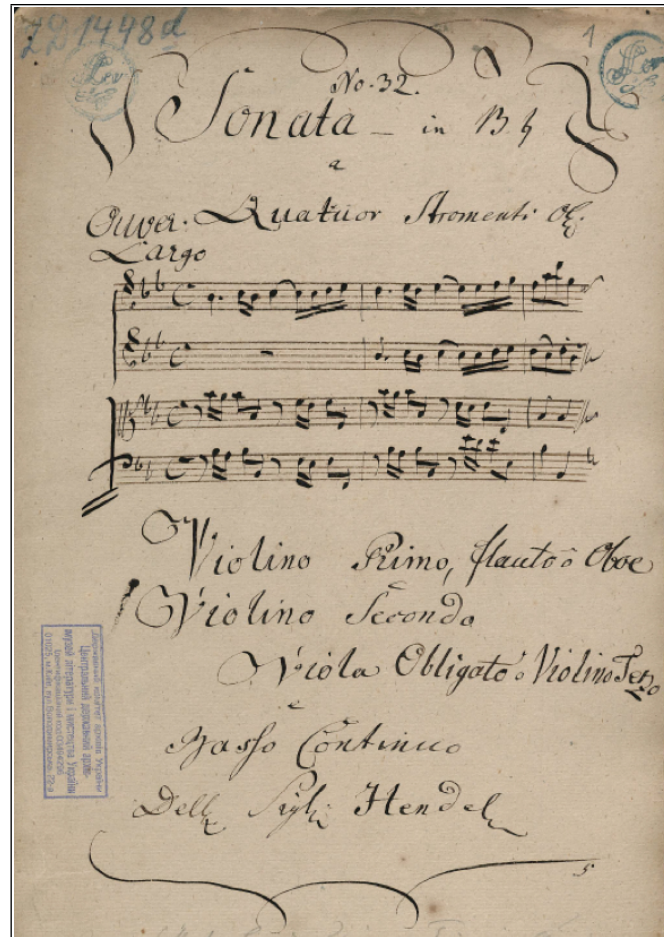 ZD 1448 d
1
No. 32.
Sonata - in B♮
a
Ouver: Quatuor Stromenti
Largo
Violino Primo, flauto ô Oboe
Violino Secondo
Viola Obligato ô Violino Terzo
e
Basso Continuo
Dell Sigl: Hendel
5